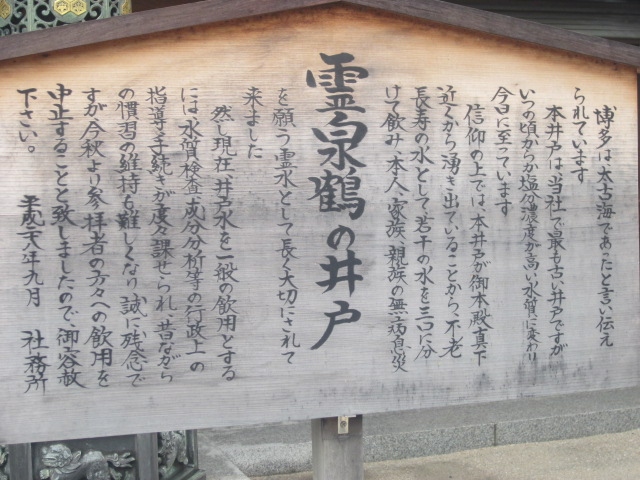 博多は太古海であったと言い伝え
られています
本井戸は、当社で最も古い井戸ですが
いつの頃からか塩分濃度が高い水質に変わり
今日に至っています
信仰の上では、本井戸が御本殿真下
近くから湧き出ていることから、不老
長寿の水として、若干の水を三口に分
けて飲み、本人、家族、親族の無病息災
霊泉鶴の井戸
を願う霊水として長く大切にされて
来ました
然し現在、井戸水を一般の飲用とする
には水質検査、成分分析等の行政上の
指導、手続きが度々課せられ、昔ながら
の慣習の維持も難しくなり誠に残念で
すが今秋より参拝者の方々への飲用を
中止することと致しましたので、御容赦
下さい。 平成二八年九月 社務所